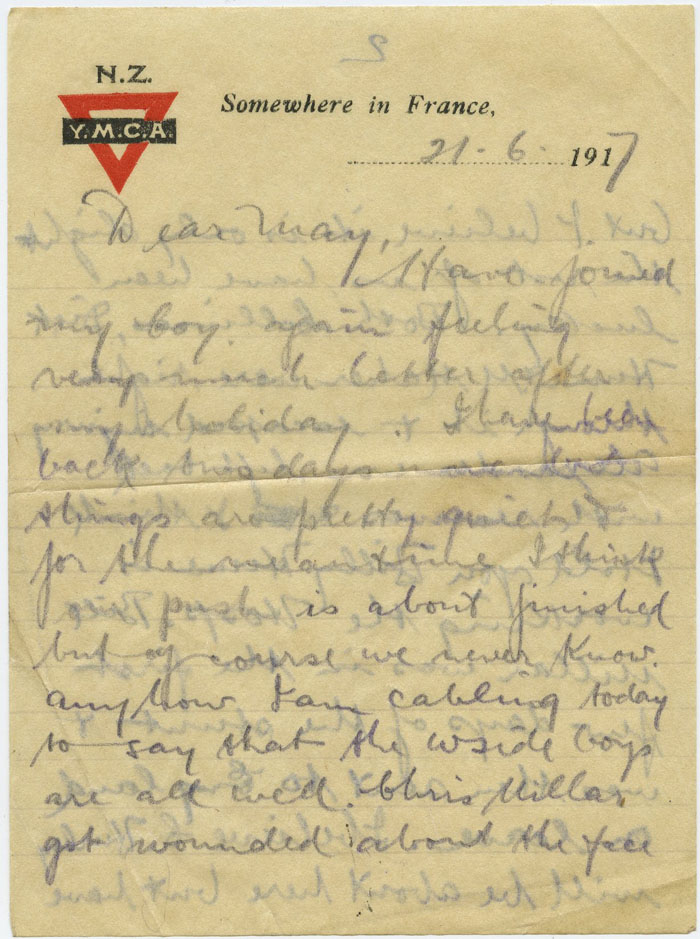 N.Z.
Y.M.C.A.
Somewhere in France,
21. 6. 1917
2
Dear May,
Have joined
my Coy. again feeling
very much better after
my holiday. I have been
back two days now
things are pretty quiet
for the meantime I think
push is about finished
but of course we never know.
anyhow I am cabling today
to say that the wside boys
are all well. Chris Millar
got wounded about the face